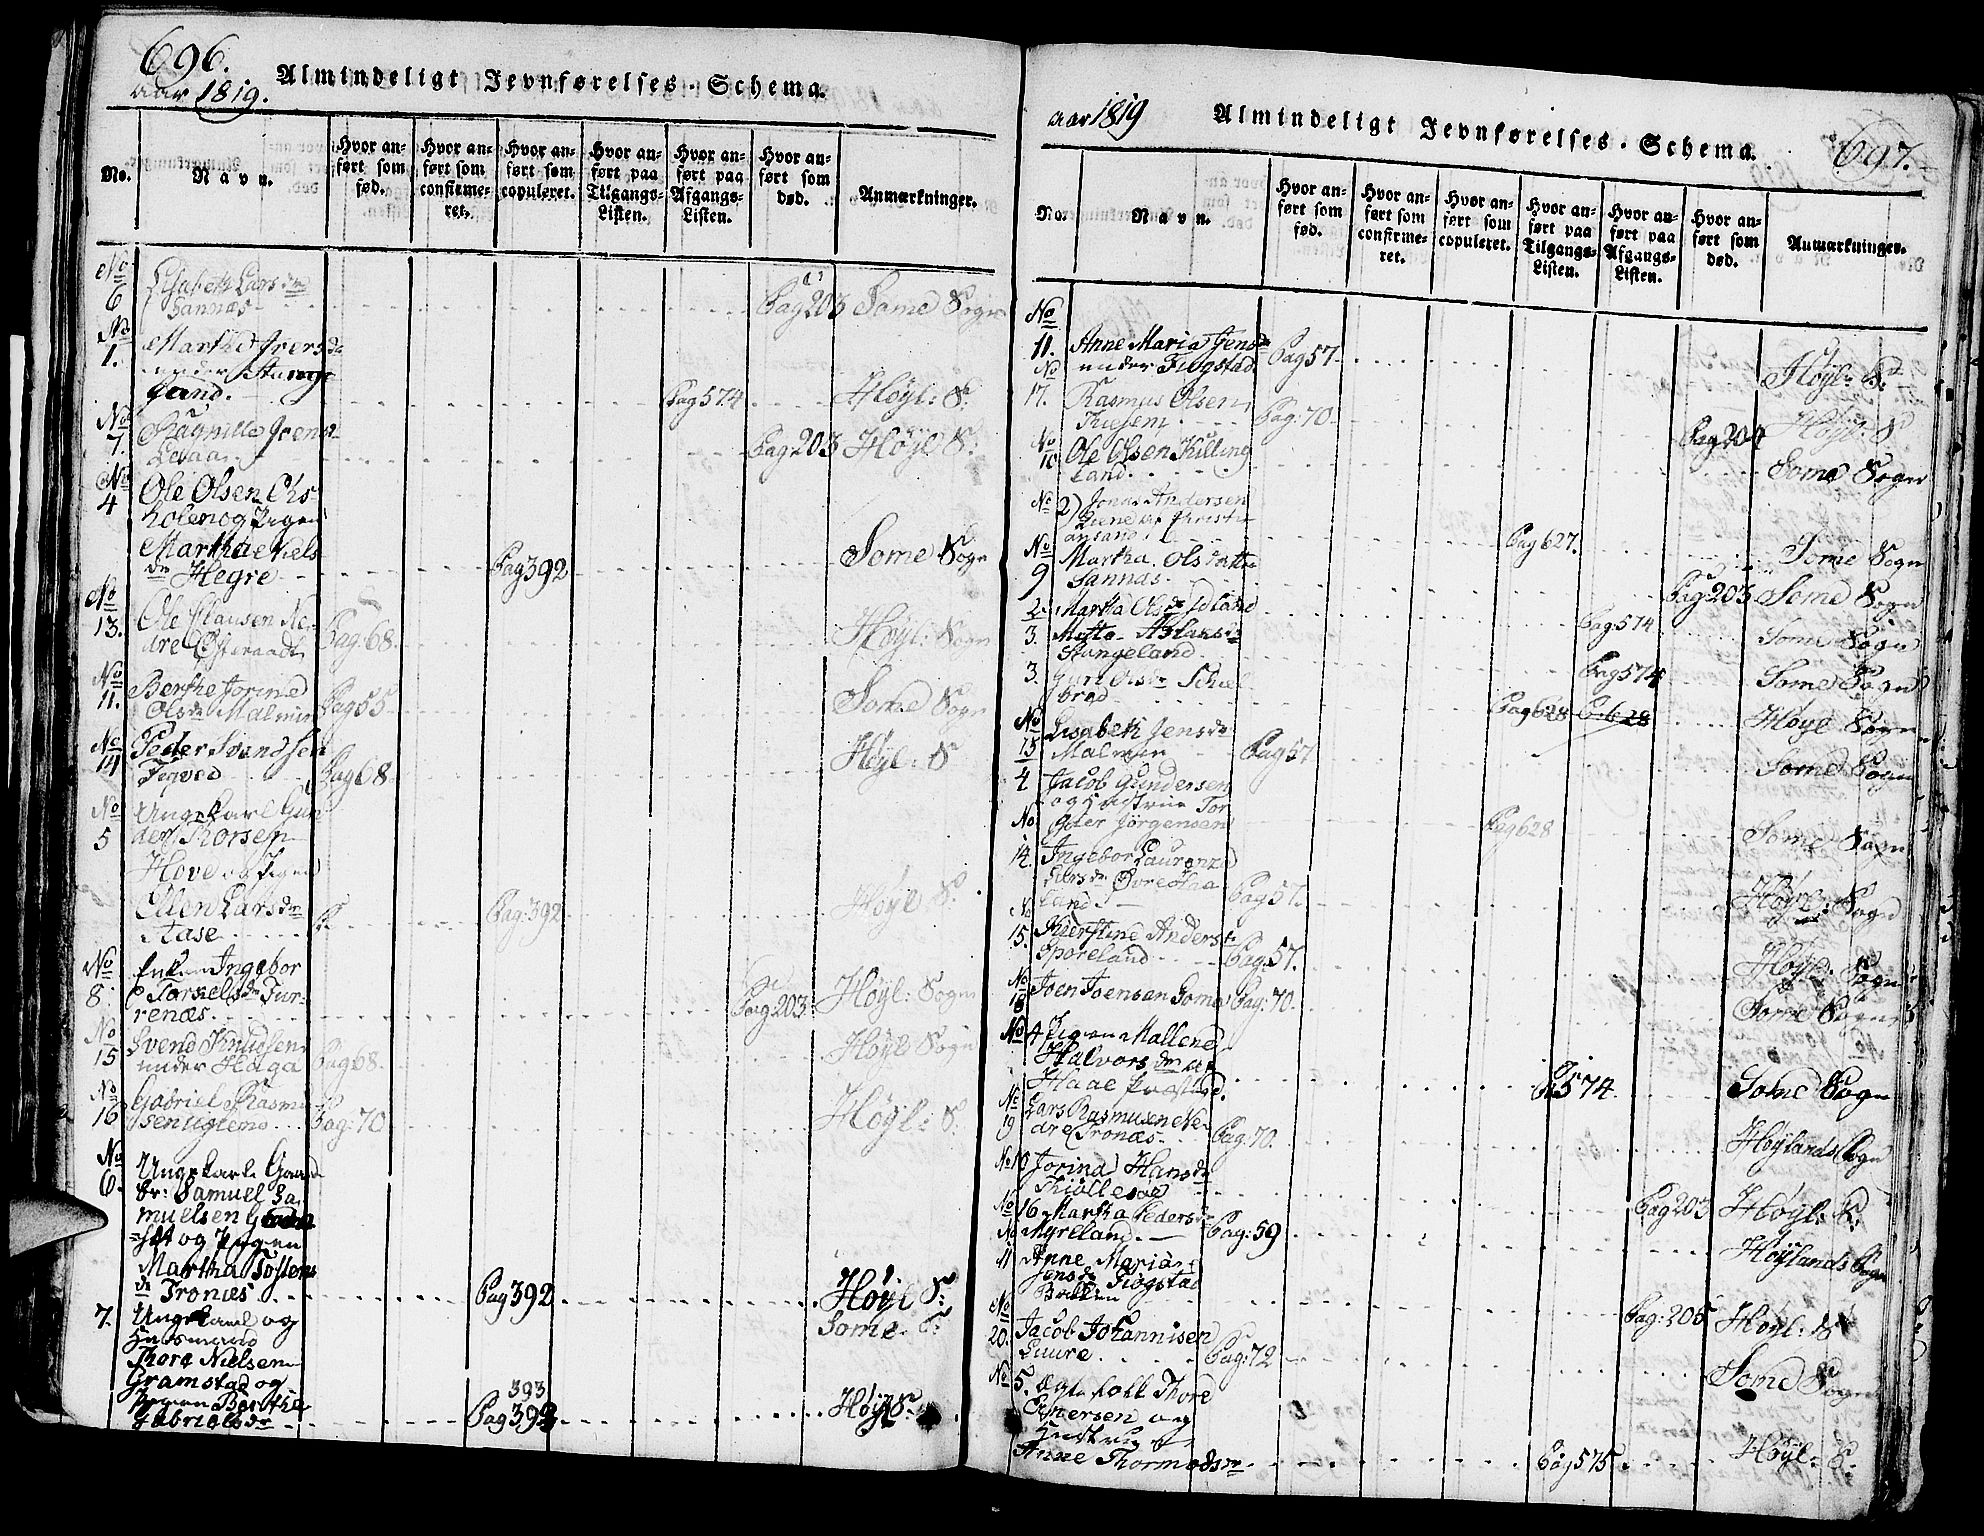 696.
aar 1819.
Almindeligt Jevnførelses-Schema.
No.
Navn.
Hvor an-
ført som
fød.
Hvor an-
ført som
confirme-
ret.
Hvor an-
ført som
copuleret.
Hvor an-
ført paa
Tilgangs-
Listen.
Hvor an-
ført paa
Afgangs-
Listen.
Hvor an-
ført som
død.
Anmærkninger.
No
6
Lisabeth Larsdr
Sannæs
Pag 203 Somme Sogn
No
1.
Martha
under Stange
land.
Pag 574 Høyl: S.
No
7.
Pag 203 Høyl S:
No
4
Ole Olsen
og Pigen
Martha Niels
dr Hegre
Pag 392
Somme Sogn
No
13.
Ole Clausen Ne-
dre Østeraadt
Pag: 68
Høyl: Sogn
No
11.
Berthe Jorine
Olsdr Malmin
Pag 55
Somme Sogn
No
14
Peder Svendsen
Pag 68
Høyl: S
No
5
Ungekarl Gun
der Thorsen
Hove og Pigen
Ellen Larsdr
Aase
Pag: 392
Høyl S:
No
8.
Enken Ingebor
Torkelsdr Fur-
renæs.
Pag 203.
Høyl: Sogn
No
15
Svend Knudsen
under Haga
Pag 68.
Høyl Sogn
No
16
Gabriel Rasmu
sen
Pag: 70
Høyl: S.
No
6.
Ungekarl Gaard
br: Samuel Sa-
muelsen
og Pigen
Martha Tostens
dr Tronæs.
Pag 392
Høyl S:
7.
Ungekarl og
Huusmand
Thore Nielsen
Gramstad og
Pigen Berthe
Gabrielsdr
Somme. S:
393
Pag 393
Høyl S:
aar 1819
Almindeligt Jevnførelses-Schema.
697.
No.
Navn.
Hvor an-
ført som
fød.
Hvor an-
ført som
confirme-
ret.
Hvor an-
ført som
copuleret.
Hvor an-
ført paa
Tilgangs-
Listen.
Hvor an-
ført paa
Afgangs-
Listen.
Hvor an-
ført som
død.
Anmærkninger.
No
11.
Anne Maria Jensdr
under Fiogstad
Pag 57.
Høyl: S:
No
17.
Rasmus Olsen
Pag: 70.
Høyl: S
No
10
Ole Olsen Killing
land.
Pag 204
Somme Sogn
No
2) Jonas Andersen
af Christi-
ansand
Pag 627.
Somme Sogn
No
9
Martha Olsdatter
Sannas
Pag 203 Somme Sogn
2. Martha Olsdr
Pag: 574
Somme Sogn
3. Mette Aslaksdr
Stangeland
Pag 574
Somme Sogn
3. Guri Olsdr Schiel
bred
Pag 628 P: 628
Høyl Sogn
No
15
Lisabeth Jensdr
Malmin
Pag 57
Somme Sogn
4
Jacob Gundersen
og Hustrue Tor
Jörgensen
Pag 628
Somme Sogn
No
14.
Ingebor Laurenze
Larsdr Øvre Haa
land
Pag 57.
Høyl: Sogn
No
15.
Kierstine Andersdr
Sporeland
Pag 57.
Høyl: Sogn
No
18
Joen Joensen Somme
Pag: 70.
Somme Sogn
No
4 Pigen Mallene
Halvorsdr af
Haae Præstegd.
P: 574.
Somme Sogn
No
19
Lars Rasmusen Ne-
dre Tronæs
Pag: 70.
Høylands Sogn
No 10
Jorina Hansdr
Pag 203
Høyl: S:
No 16 Martha Pedersdr
Myreland.
Pag: 59
Høylands Sogn
No
11
Anne Maria
Jensdr Fiogstad
Pag: 205
Høyl: S
No
20.
Jacob Johannisen
Luure
Pag: 72
Somme Sogn
No
5.
Ægtefolk Thore
og
Hustrue
Anne Thormodsdr
Pag 575
Høyl: S.